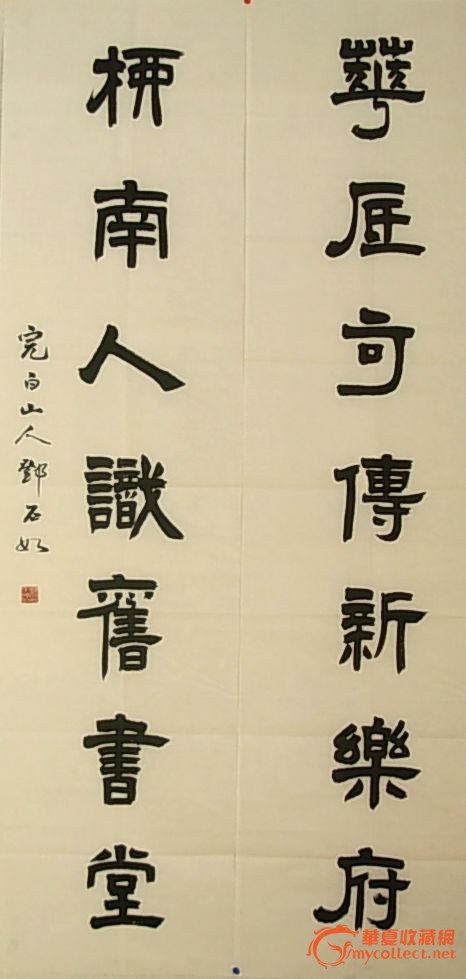 華底可傳新樂府
柳南人識舊書堂
完白山人鄧石如
華夏收藏網
mycollect.net